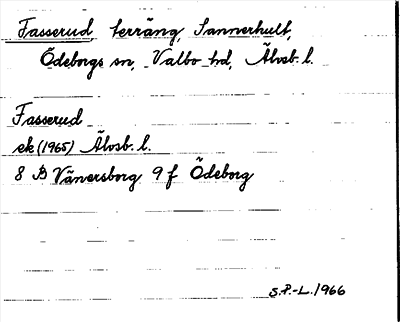 Fasserud, terräng, Sannerhult,
Ödeborgs sn, Valbo hd, Älvsb. l.
Fasserud
ek (1965) Älvsb. l.
8 B Vänersborg 9 f Ödeborg
S.P.-L. 1966